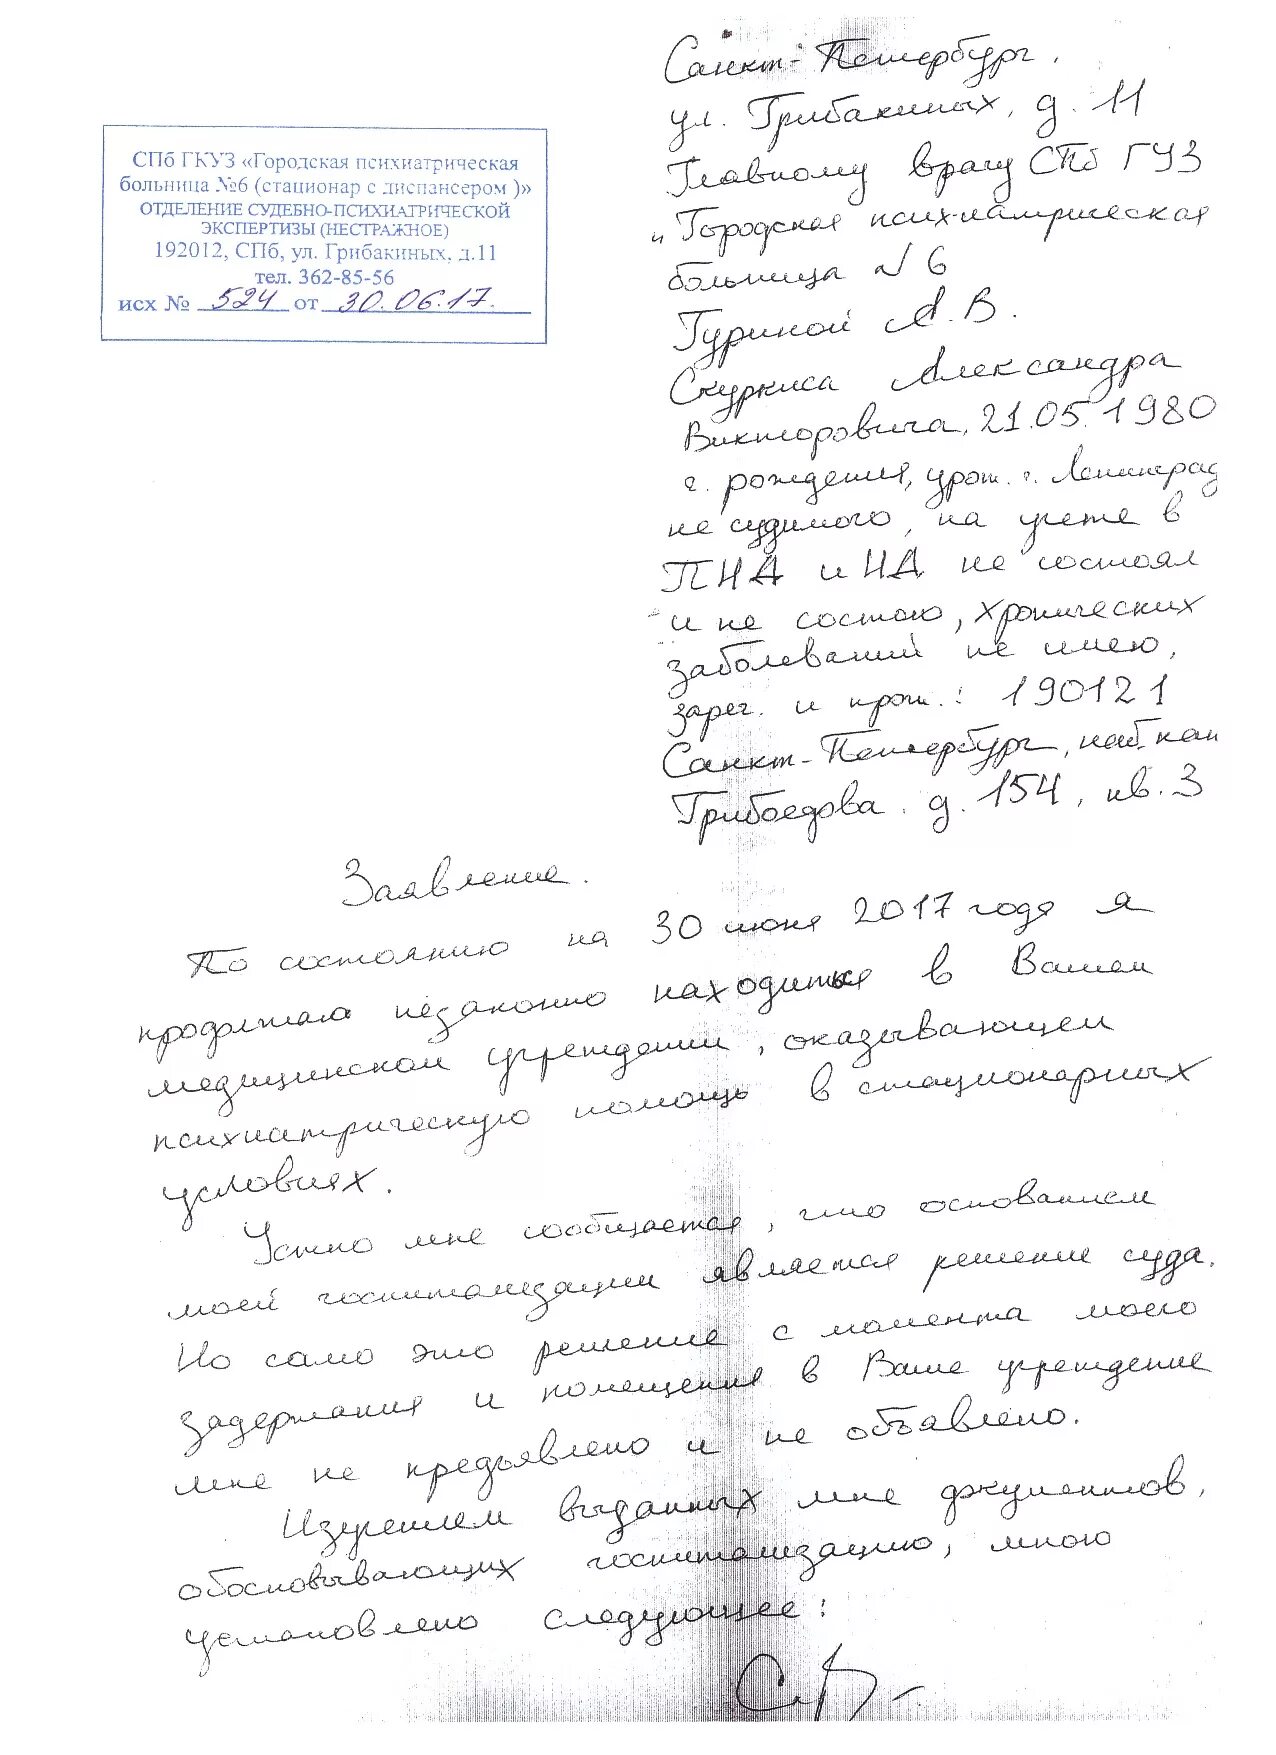 СПб ГКУЗ «Городская психиатрическая
больница №6 (стационар с диспансером )»
ОТДЕЛЕНИЕ СУДЕБНО-ПСИХИАТРИЧЕСКОЙ
ЭКСПЕРТИЗЫ (НЕСТРАЖНОЕ)
192012, СПб, ул. Грибакиных, д.11
тел. 362-85-56
исх № 524 от 30.06.17.
Санкт-Петербург,
ул. Грибакиных, д. 11
Главному врачу СПб ГУЗ
"Городская психиатрическая
больница №6
Гуриной А.В.
Скуркиса Александра
Викторовича, 21.05.1980
г. рождения, урож. г. Ленинград
не судимого, на учете в
ПНД и НД не состоял
и не состою, хронических
заболеваний не имею,
зарег. и прож.: 190121
Санкт-Петербург, наб. кан
Грибоедова. д. 154, кв. 3
Заявление.
По состоянию на 30 июня 2017 года я
продолжаю незаконно находиться в Вашем
медицинском учреждении, оказывающем
психиатрическую помощь в стационарных
условиях.
Устно мне сообщается, что основанием
моей госпитализации является решение суда.
Но само это решение с момента моего
задержания и помещения в Ваше учреждение
мне не предъявлено и не объявлено.
Изучением выданных мне документов,
обосновывающих госпитализацию, мною
установлено следующее: